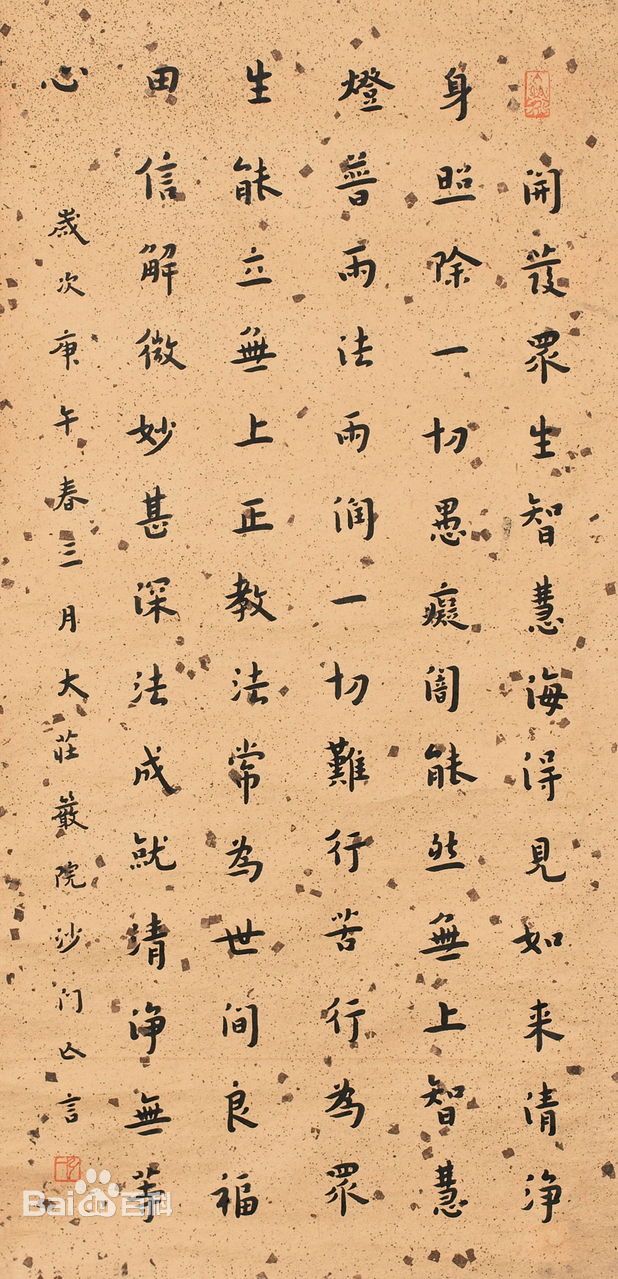 開發眾生智慧海得見如来清淨
身照除一切愚癡闇能然無上智慧
燈普雨法雨润一切難行苦行為眾
生能立無上正教法常為世间良福
田信解微妙甚深法成就清淨無等
心
歲次庚午春三月大莊嚴院沙门亾言
Bai百科